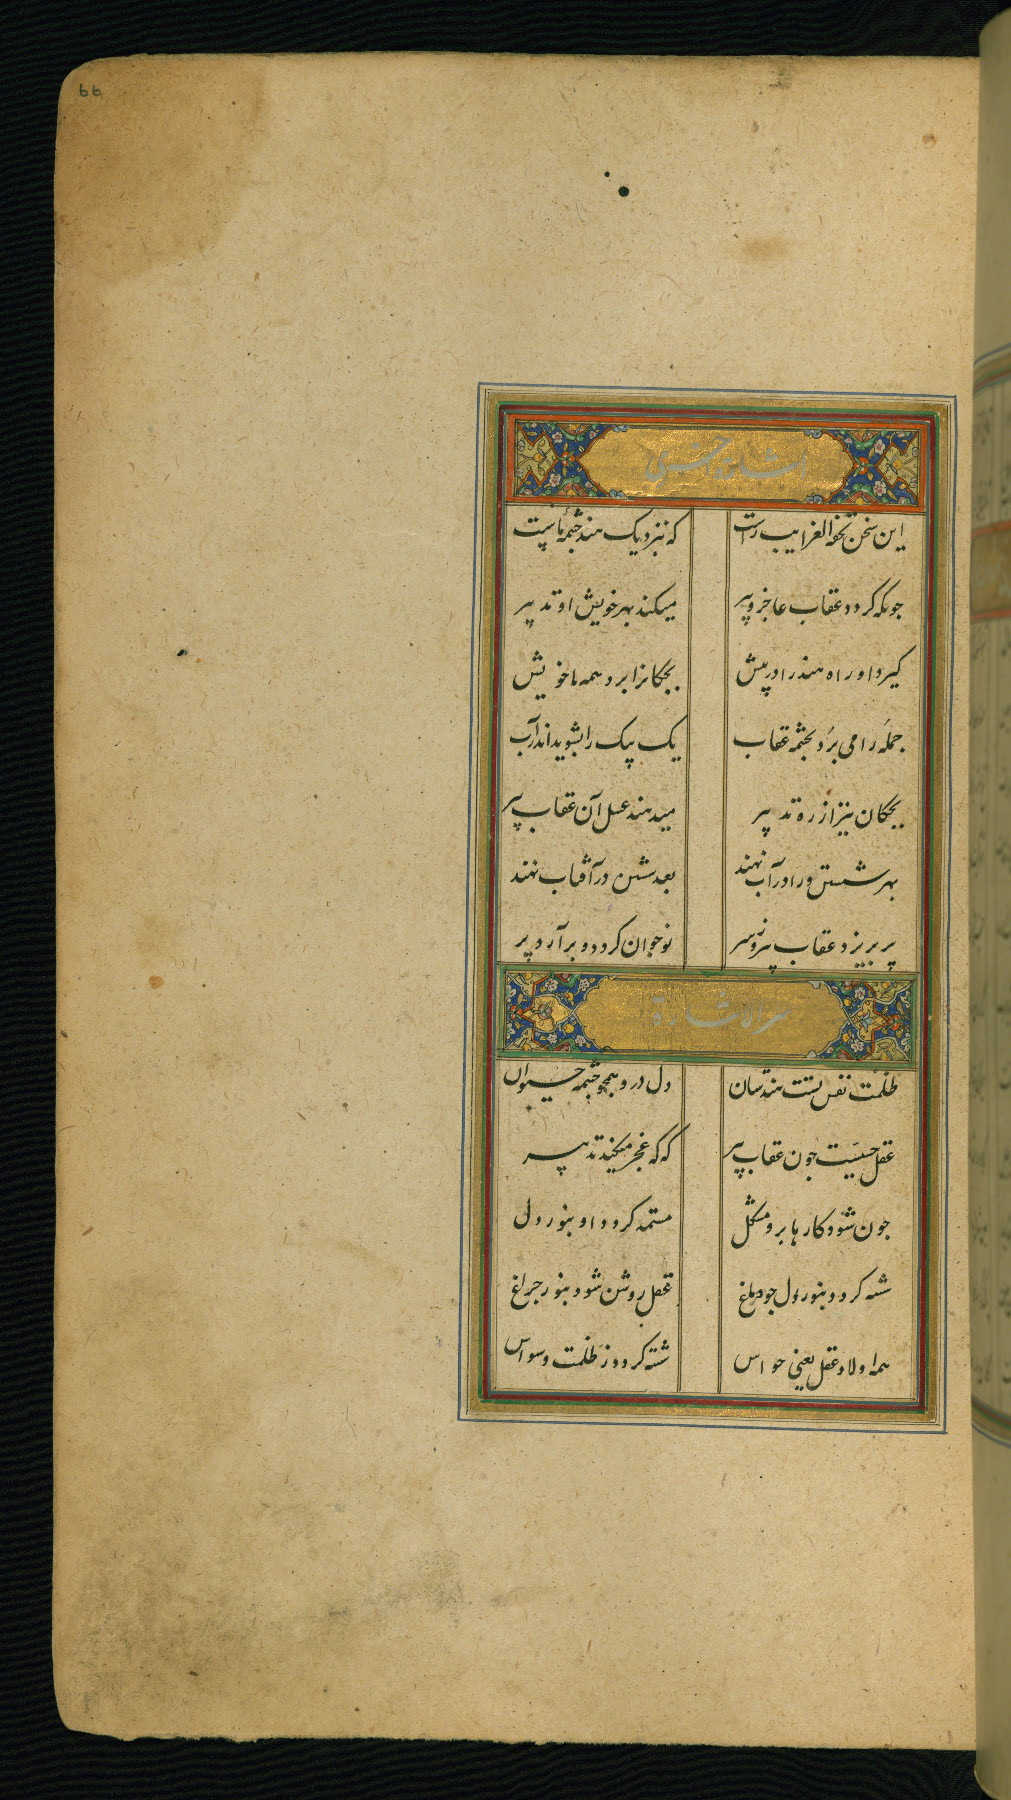 66
اشارة اخری
این سخن تحفة الغرایب راست که بنزدیک هند چشمهٔ ماست
جونکه کردد عقاب عاجز و پیر میکند بهر خویش او تدبیر
کیرد او راه هند را در پیش بجکانرا برد همه با خویش
جمله را می برد بجشمه عقاب یک بیک را بشوید اندر آب
بجکان نیز از ره تدبیر میدهند غسل آن عقاب پیر
بهر شستن ورا در آب نهند بعد شستن در آفتاب نهند
پر بریزد عقاب نوجوان کردد و برآرد پر
سر الاشارة
ظلمت نفس تست هندستان دل در و همچو جشمه حیوان
عقل جون عقاب پیر که که عجز میکند تدبیر
جون شود کارها برو مشکل مستمد کردد او بنور دل
شسته کردد بنور دل جو دماغ عقل روشن شود بنور جراغ
همه اولاد عقل یعنی حواس شسته کردد ز ظلمت وسواس